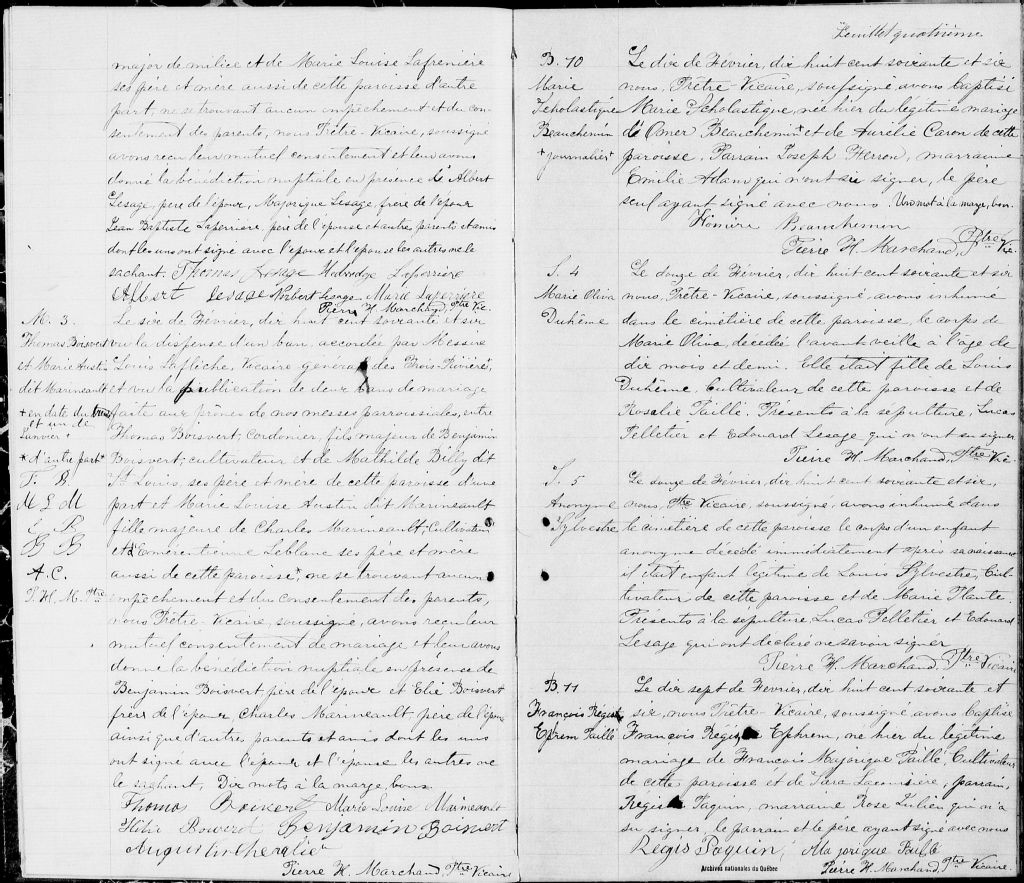 major de milice et de Marie Louise Lafrenière
ses père et mère aussi de cette paroisse d'autre
part, ne se trouvant aucun empêchement et du con-
sentement des parents, nous Prêtre-Vicaire, soussigné
avons reçu leur mutuel consentement et leur avons
donné la bénédiction nuptiale en présence de Albert
Lesage, père de l'époux, Majorique Lesage, frère de l'époux
Jean Baptiste Laperrière, père de l'épouse et autres parents et amis
dont les uns ont signé avec l'époux et l'épouse les autres ne le
sachant. Thomas Lesage Laperrière
Albert Lesage Norbert Lesage Marie Laperriere
Pierre H. Marchand, Ptre Vic.
M. 3.
Thomas Boisvert
et Marie Austin
dit Marineault
+ en date du trente
et un de
Janvier +
* d'autre part *
T. B.
M L M
B B
A. C.
P. H. M. Ptre
Le six de Février, dix huit cent soixante et six
vu la dispense d'un ban, accordée par Messire
Louis Laflèche, Vicaire général des Trois Rivières,
et vu la publication de deux bans de mariage
faite aux prônes de nos messes parroissiales, entre
Thomas Boisvert, Cordonier, fils majeur de Benjamin
Boisvert, cultivateur et de Mathilde Billy dit
St Louis, ses père et mère de cette paroisse d'une
part et Marie Louise Austin dit Marineault
fille majeure de Charles Marineault, Cultivateur
et d'Emérentienne Leblanc ses père et mère
aussi de cette paroisse*, ne se trouvant aucun
empêchement et du consentement des parents,
nous Prêtre-Vicaire, soussigné, avons reçu leur
mutuel consentement de mariage et leur avons
donné la bénédiction nuptiale en présence de
Benjamin Boisvert père de l'époux et Elie Boisvert
frère de l'époux, Charles Marineault, père de l'épouse
ainsi que d'autres parents et amis dont les uns
ont signé avec l'époux et l'épouse les autres ne
le sachant, Dix mots à la marge, bons.
Thomas Boisvert Marie Louise Marineault
Hélie Boisvert Benjamin Boisvert
Augustin
Pierre H. Marchand, Ptre Vicaire
Feuillet quatrième
B. 10
Marie
Scholastique
Beauchemin
+ journalier +
Le dix de Février, dix huit cent soixante et six
nous, Prêtre-Vicaire, soussigné, avons baptisé
Marie Scholastique, née hier du légitime mariage
d'Omer Beauchemin+ et de Aurélie Caron de cette
paroisse, Parrain Joseph Herron, marraine
Emilie Adam qui n'ont su signer, le père
seul ayant signé avec nous. Un mot à la marge, bon.
Homère Beauchemin
Pierre H. Marchand, Ptre Vic.
S. 4
Marie Oliva
Duhême
Le douze de Février, dix huit cent soixante et six
nous, Prêtre-Vicaire, soussigné, avons inhumé
dans le cimetière de cette paroisse, le corps de
Marie Oliva, décédée l'avant veille à l'âge de
dix mois et demi. Elle était fille de Louis
Duhême Cultivateur de cette paroisse et de
Rosalie Paillé. Présents à la sépulture, Lucas
Pelletier et Edouard Lesage qui n'ont su signer
Pierre H. Marchand, Ptre Vic.
S. 5
Anonyme
Sylvestre
Le douze de Février, dix huit cent soixante et six,
nous, Ptre Vicaire, soussigné, avons inhumé dans
le cimetière de cette paroisse le corps d'un enfant
anonyme décédé immédiatement après sa naissance
il était enfant légitime de Louis Sylvestre, Cul-
tivateur, de cette paroisse et de Marie Plante
Présents à la sépulture Lucas Pelletier et Edouard
Lesage qui ont déclaré ne savoir signer
Pierre H. Marchand, Ptre Vicaire
B. 11
François Régis
Ephrem Paillé
Le dix sept de Février, dix huit cent soixante et
six, nous Prêtre-Vicaire, soussigné avons baptisé
François Régis Ephrem, né hier du légitime
mariage de François Majorique Paillé, Cultivateur
de cette paroisse et de Sara Lacoursière, parrain,
Régis Paquin, marraine Rose Julien qui n'a
su signer, le parrain et le père ayant signé avec nous
Régis Paquin, Majorique Paillé
Pierre H. Marchand, Ptre Vicaire.
Archives nationales du Québec